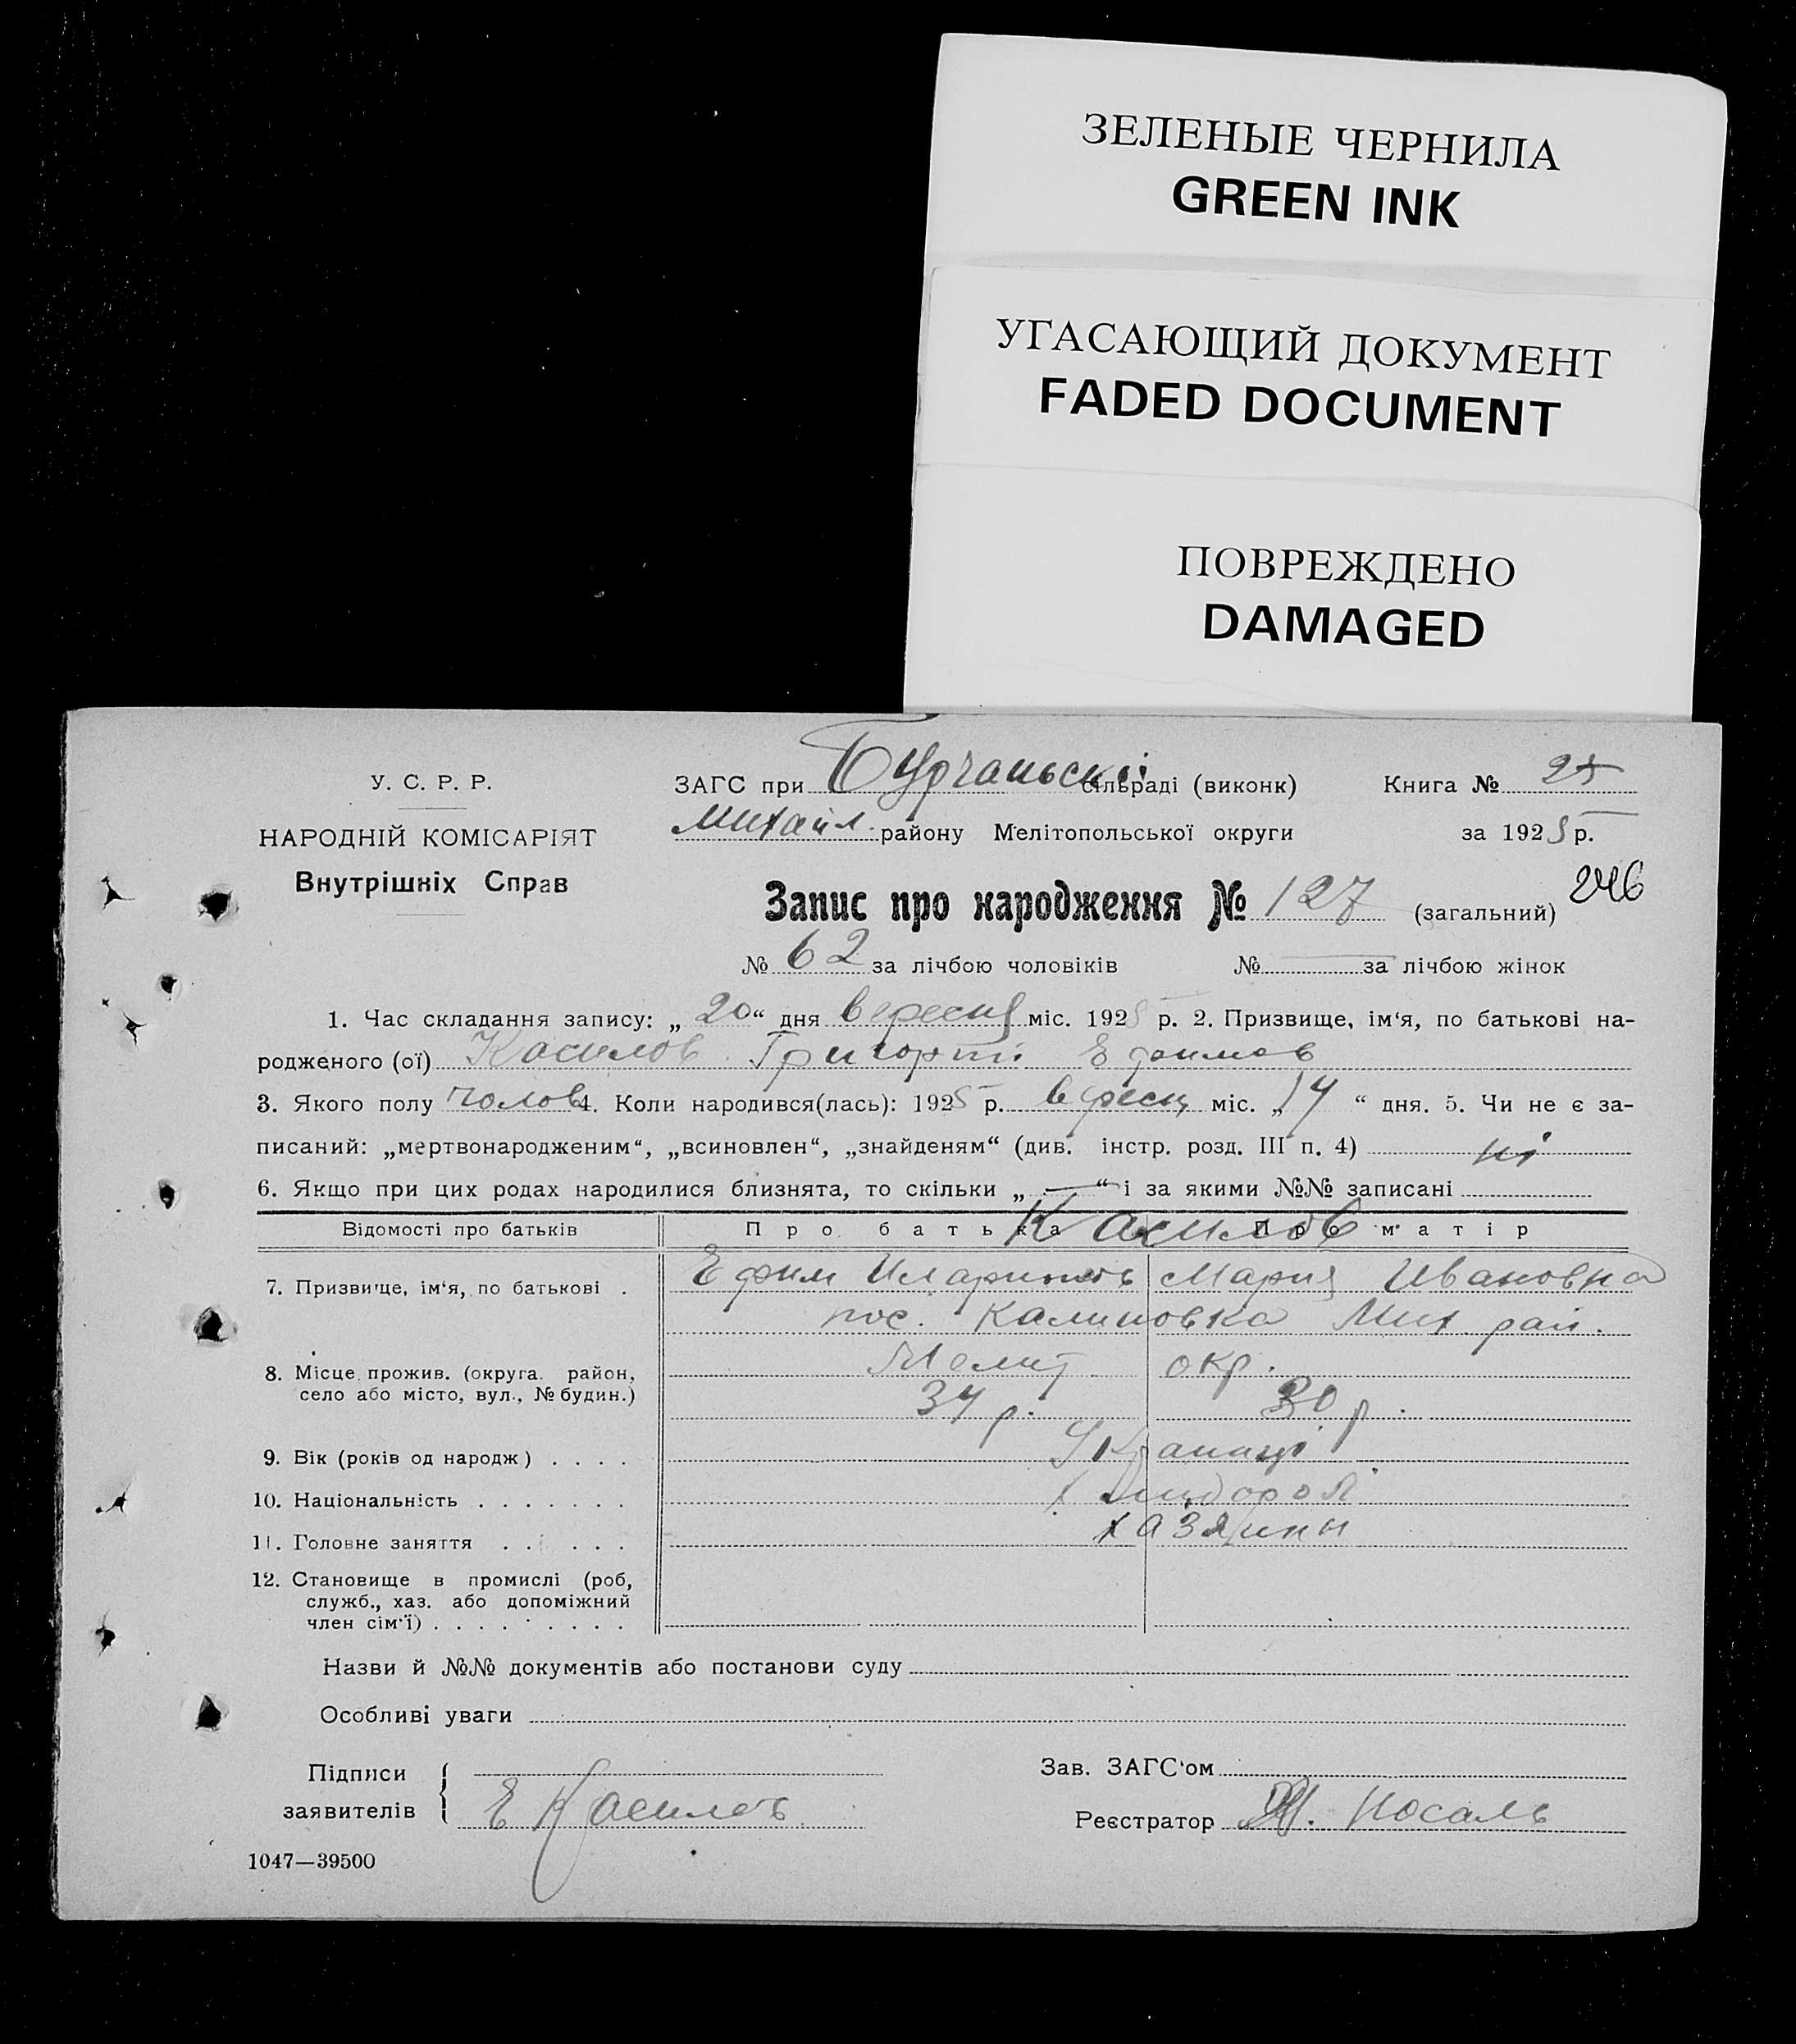 ЗЕЛЕНЫЕ ЧЕРНИЛА
GREEN INK
УГАСАЮЩИЙ ДОКУМЕНТ
FADED DOCUMENT
ПОВРЕЖДЕНО
DAMAGED
У. С. Р. Р.
НАРОДНІЙ КОМІСАРІЯТ
Внутрішніх Справ
ЗАГС при Бурчаньскі сільраді (виконк) Книга № 25
Михайл. району Мелітопольської округи за 1925 р.
Запис про народження № 127 (загальний) 246
№ 62 за лічбою чоловіків № — за лічбою жінок
1. Час складання запису: „ 20 “ дня вересня міс. 1925 р. 2. Призвище, ім‘я, по батькові на-
родженого (ої) Касилов Григорій Ефимов
3. Якого полу чолов 4. Коли народився(лась): 1925 р. вересн міс. „ 14 “ дня. 5. Чи не є за-
писаний: „мертвонародженим“, „всиновлен“, „знайденям“ (див. інстр. розд. III п. 4) ні
6. Якщо при цих родах народилися близнята, то скільки „ — “ і за якими №№ записані
Відомості про батьків Про батька Про матір
Касилов
7. Призвище, ім‘я, по батькові . Ефим Мария Ивановна
пос. Калиновка Мих рай.
8. Місце прожив. (округа. район, село або місто, вул., № будин.) Мелит окр.
34 р. 30 р.
9. Вік (років од народж) . . . . Українці
10. Національність . . . . . . .
11. Головне заняття . . . . . . хазяини
12. Становище в промислі (роб, служб., хаз. або допоміжний член сім‘ї) . . . . . . . . .
Назви й №№ документів або постанови суду
Особливі уваги
Підписи заявителів { Е Касилов
Зав. ЗАГС‘ом
Реєстратор Носаль
1047—39500